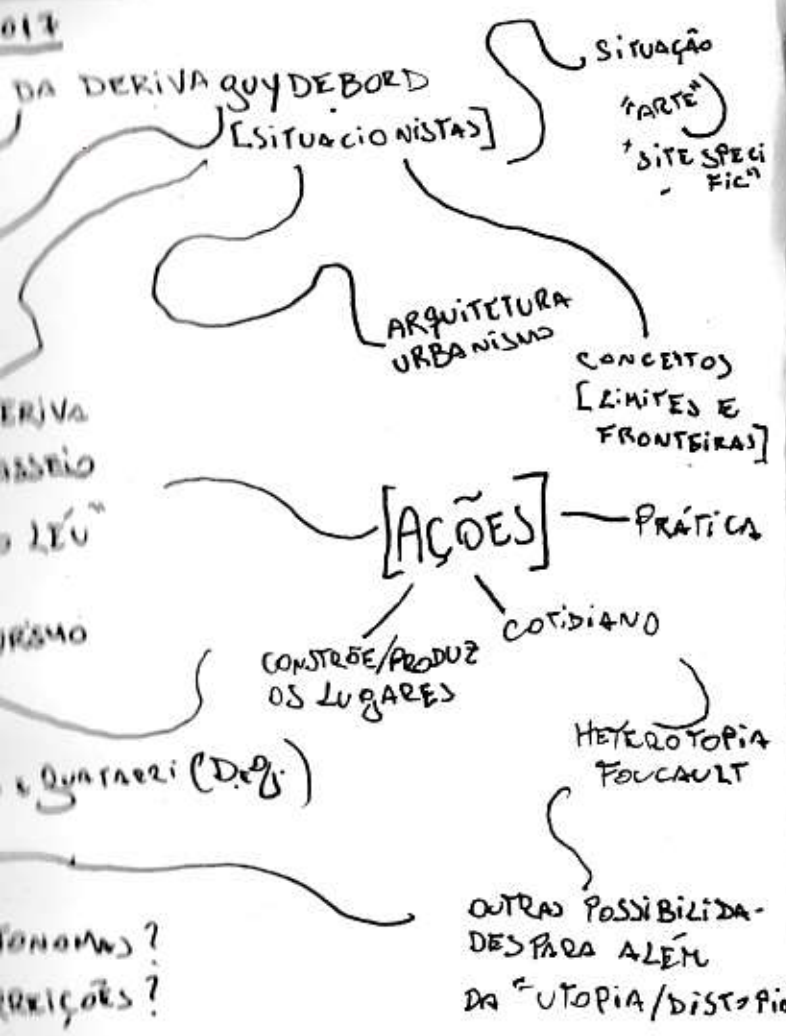 017
DA DERIVA GUY DEBORD
[SITUACIONISTAS]
SITUAÇÃO
"ARTE"
"SITE SPECI
FIC"
ARQUITETURA
URBANISMO
CONCEITOS
[LIMITES E
FRONTEIRAS]
ERIVA
ASSEIO
O LÉU"
URISMO
[AÇÕES]
PRÁTICA
CONSTRÓE/PRODUZ
OS LUGARES
COTIDIANO
HETEROTOPIA
FOUCAULT
E GUATARRI (D.eg.)
OUTRAS POSSIBILIDA-
DES PARA ALÉM
DA "UTOPIA/DISTOPIA
TONOMAS?
RREIÇÕES?